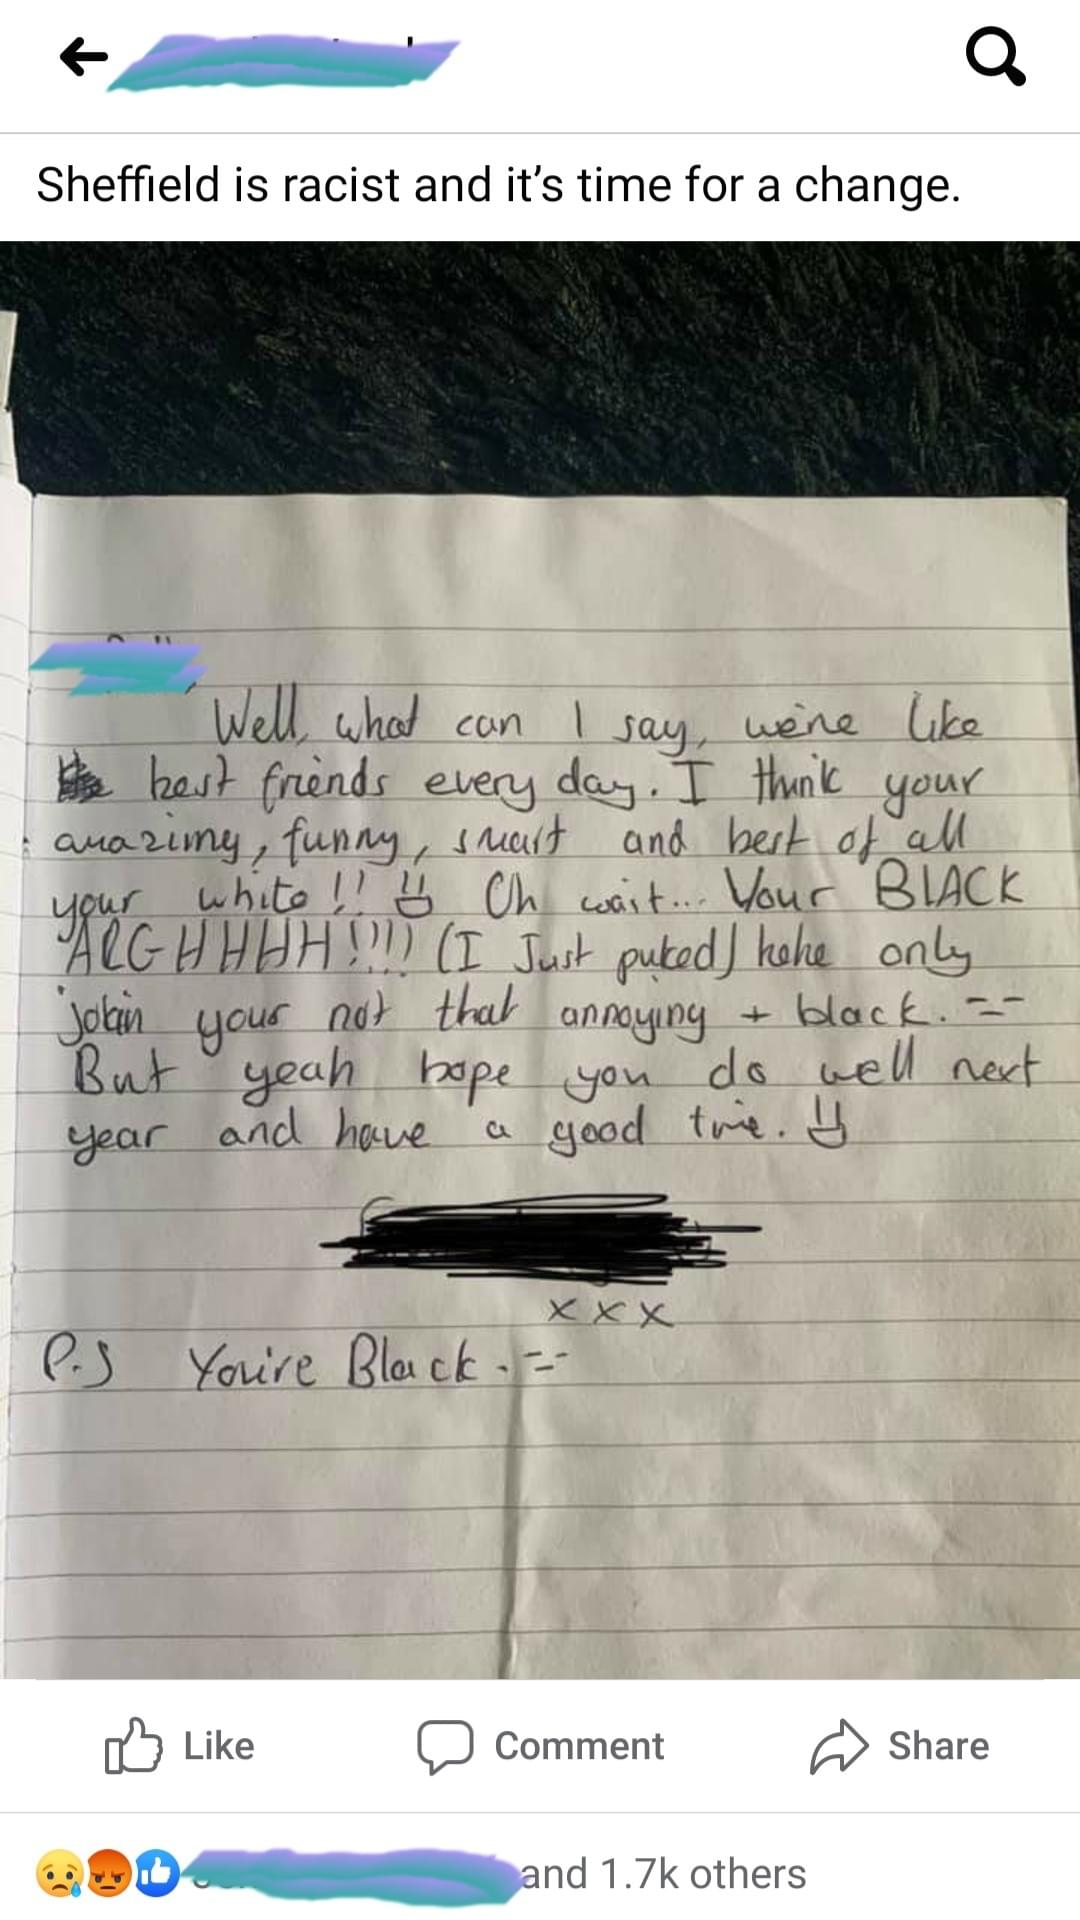 Sheffield is racist and it's time for a change.
Well, what can I say, we're like
best friends every day. I think your
amazimg, funny, smart and best of all
your white!! Oh wait... Your BLACK
ARGHHHH!!!! (I Just puked) hehe only
jokin your not that annoying + black. =-
But yeah hope you do well next
year and have a good time.
xxx
P.S You're Black. =-
Like
Comment
Share
and 1.7k others